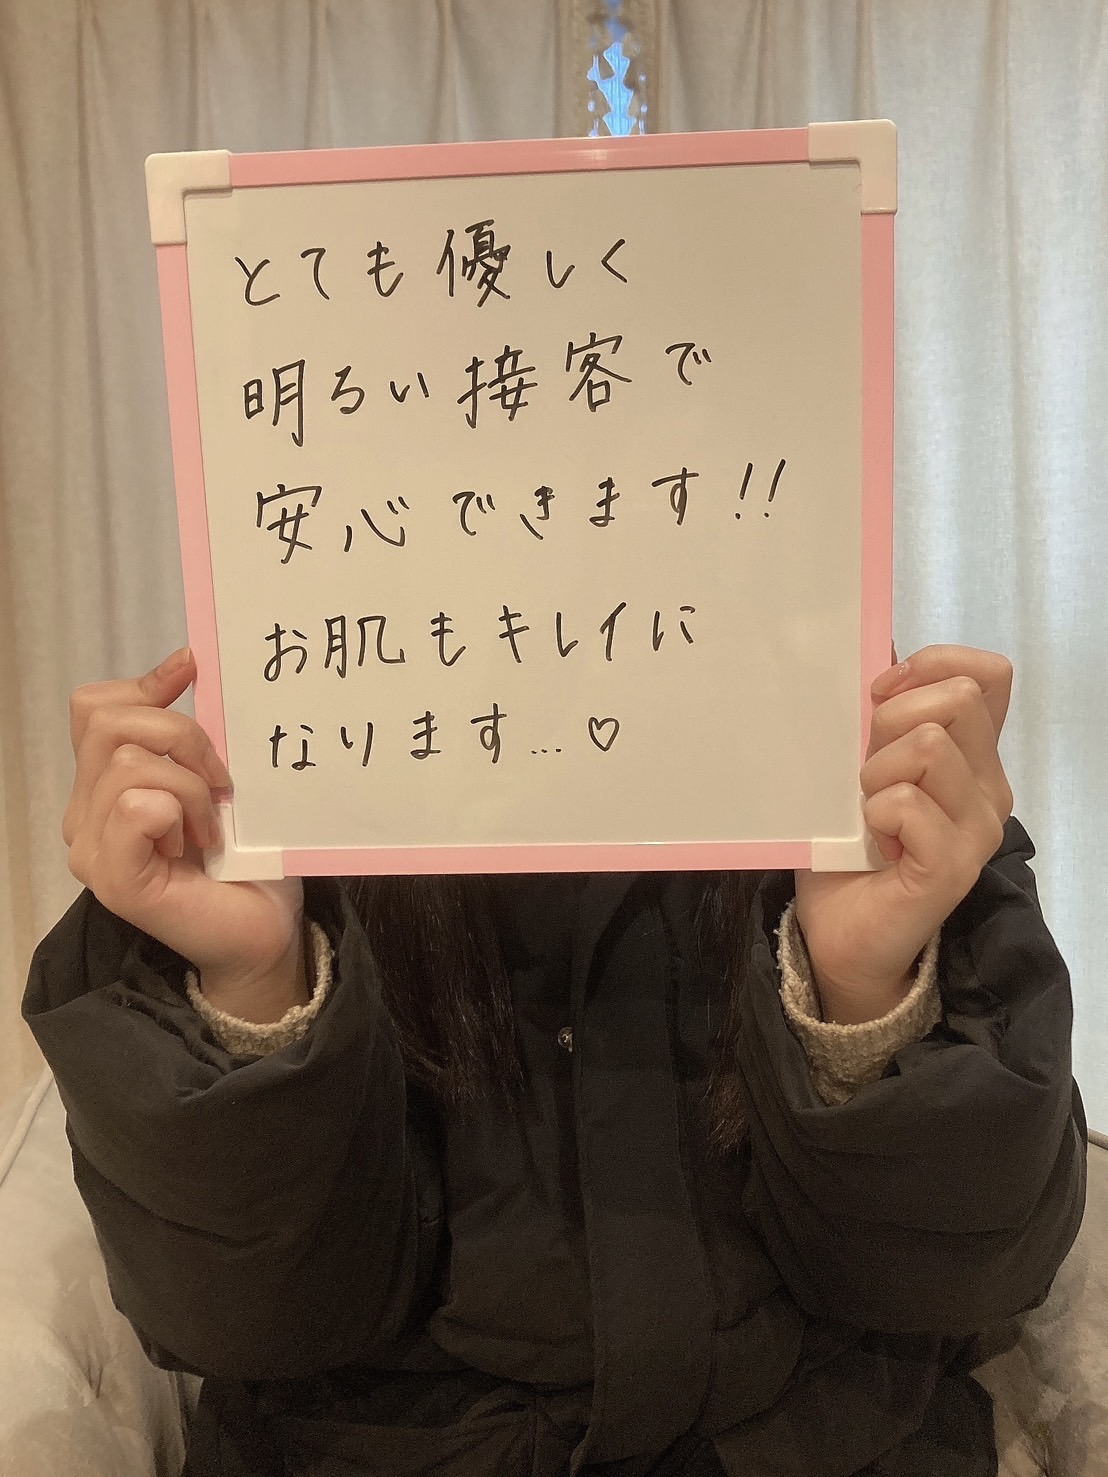 とても優しく
明るい接客で
安心できます!!
お肌もキレイに
なります…♡